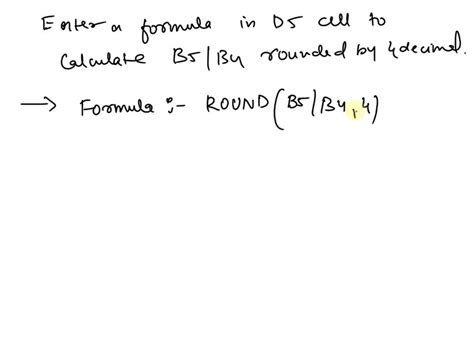 Enter a formula in D5 cell to
Calculate B5/B4 rounded by 4 decimal.
→ Formula :- ROUND(B5/B4,4)